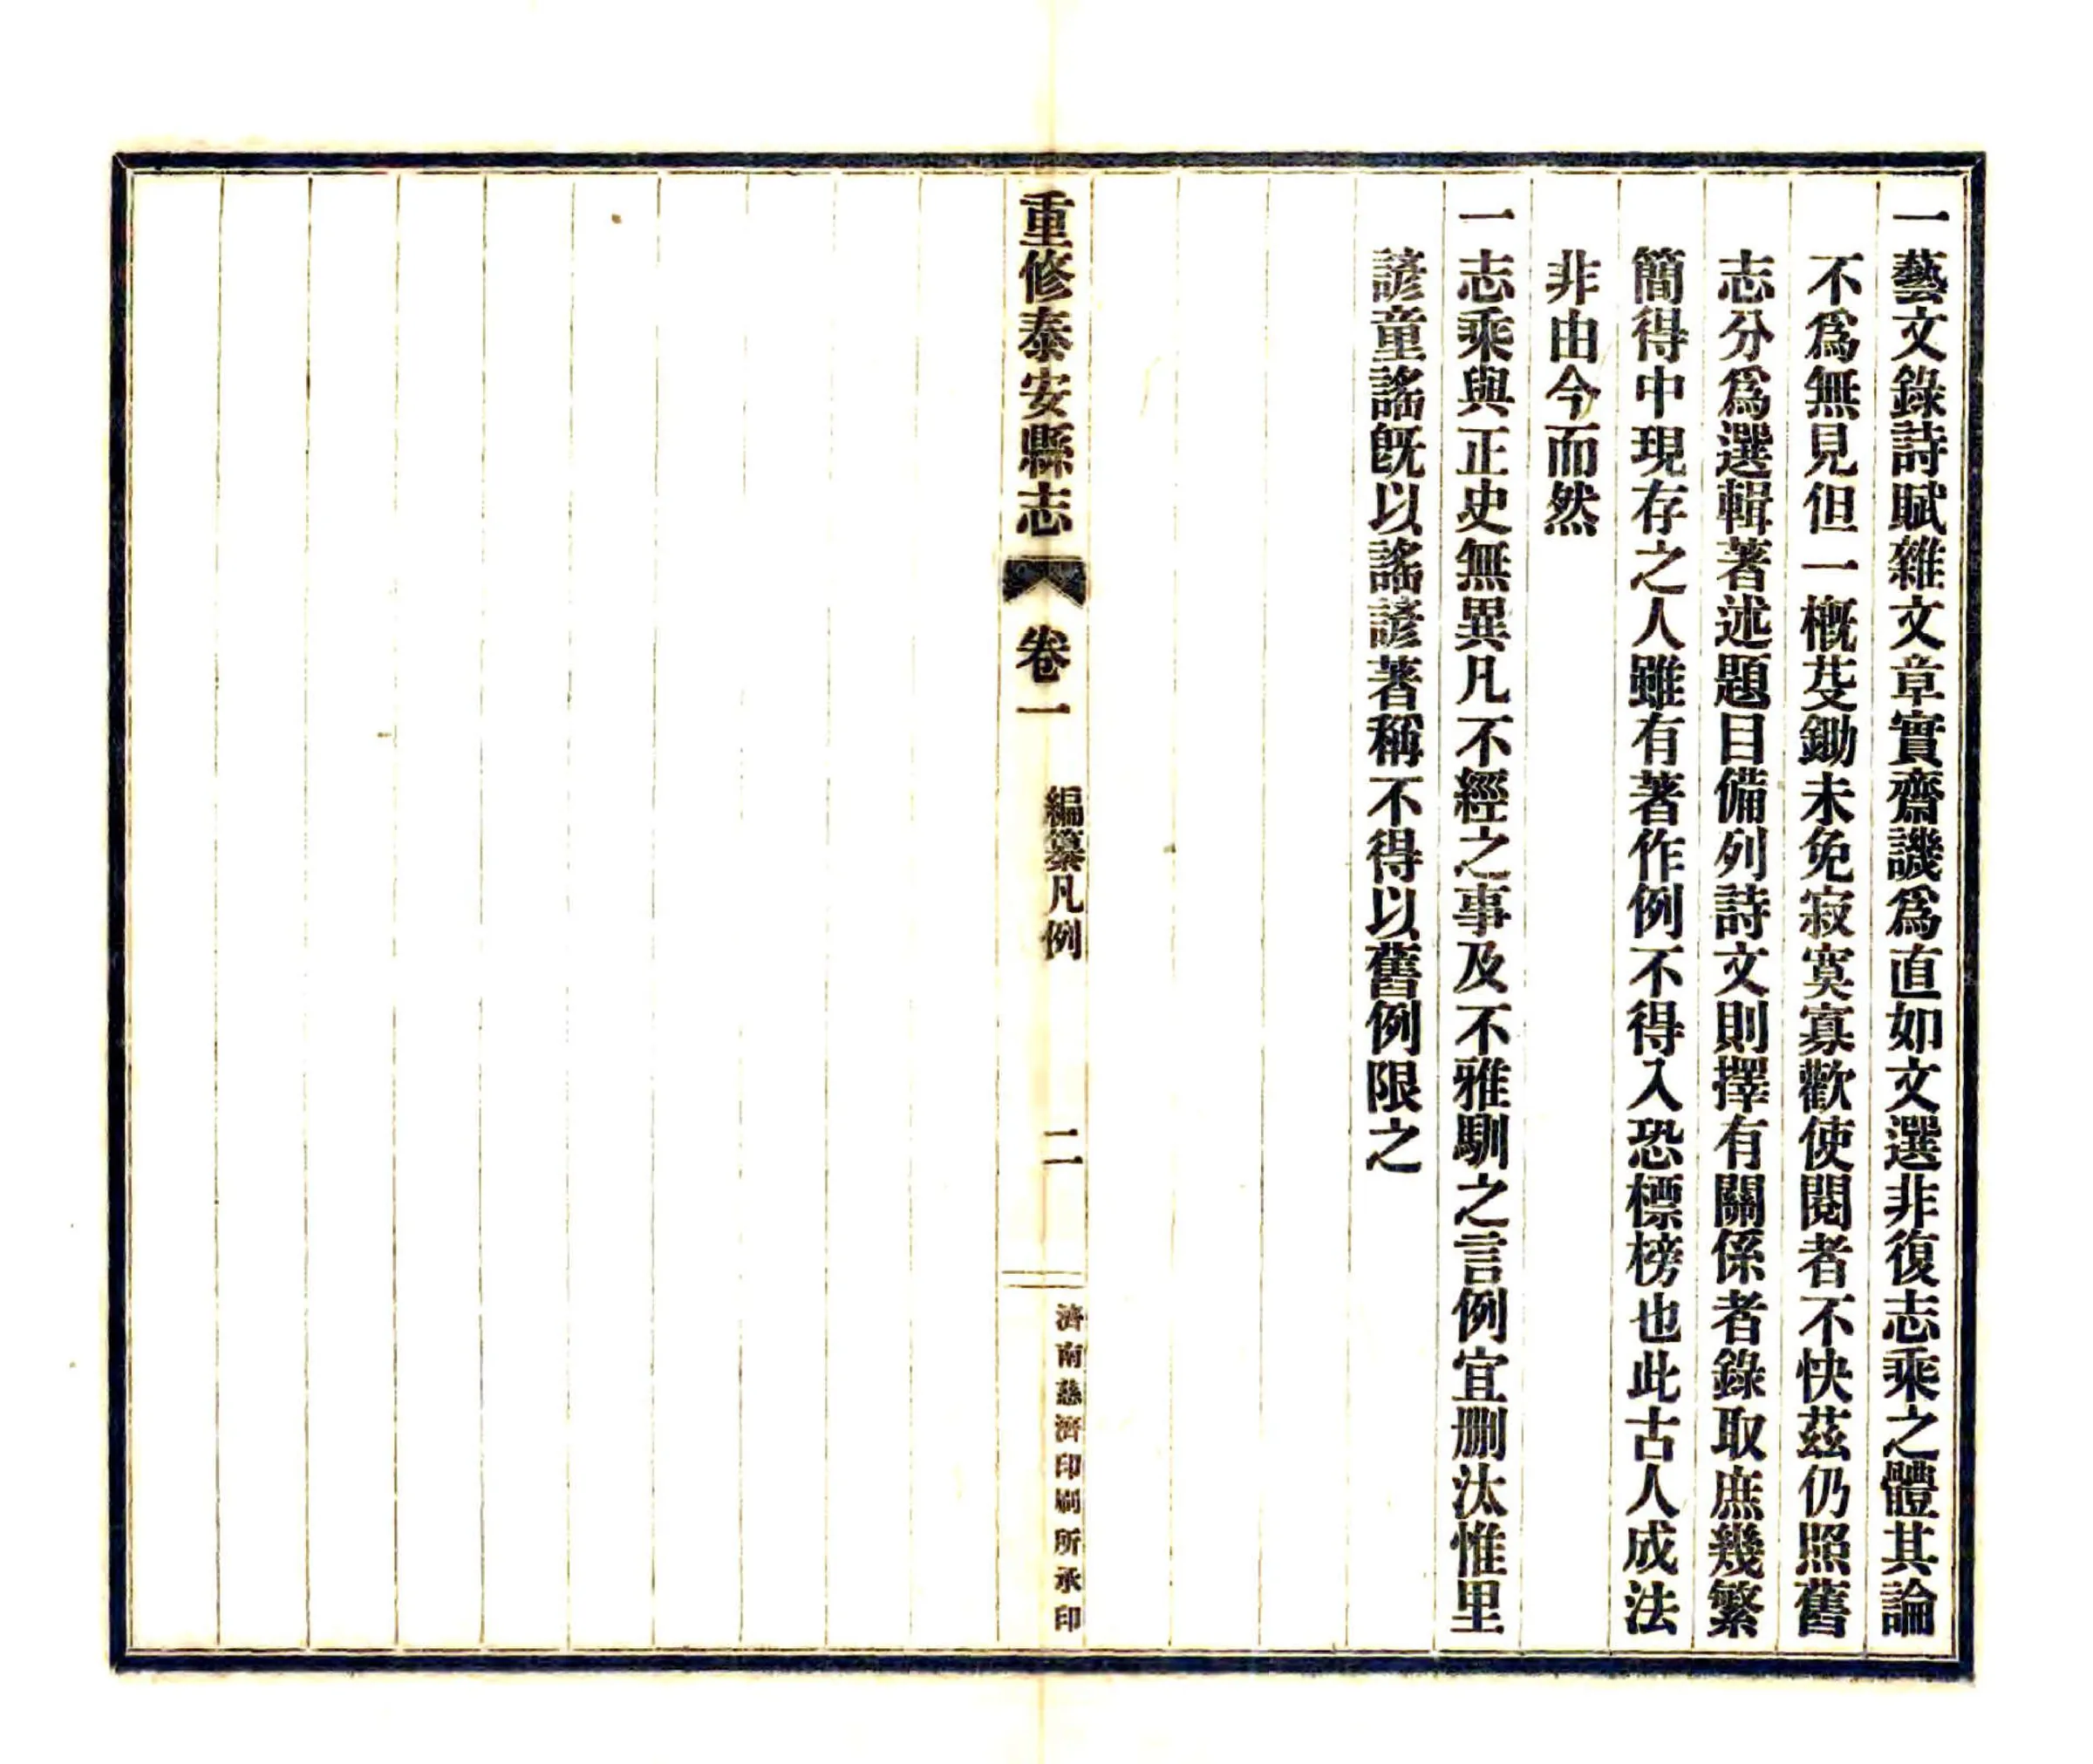 一藝文錄詩賦雜文章實齋譏爲直如文選非復志乘之體其論
不爲無見但一概芟鋤未免寂寞寡歡使閱者不快茲仍照舊
志分爲選輯著述題目備列詩文則擇有關係者錄取庶幾繁
簡得中現存之人雖有著作例不得入恐標榜也此古人成法
非由今而然
一志乘與正史無異凡不經之事及不雅馴之言例宜删汰惟里
諺童謠旣以謠諺著稱不得以舊例限之
重修泰安縣志 卷一 編纂凡例 二 濟南慈濟印刷所承印